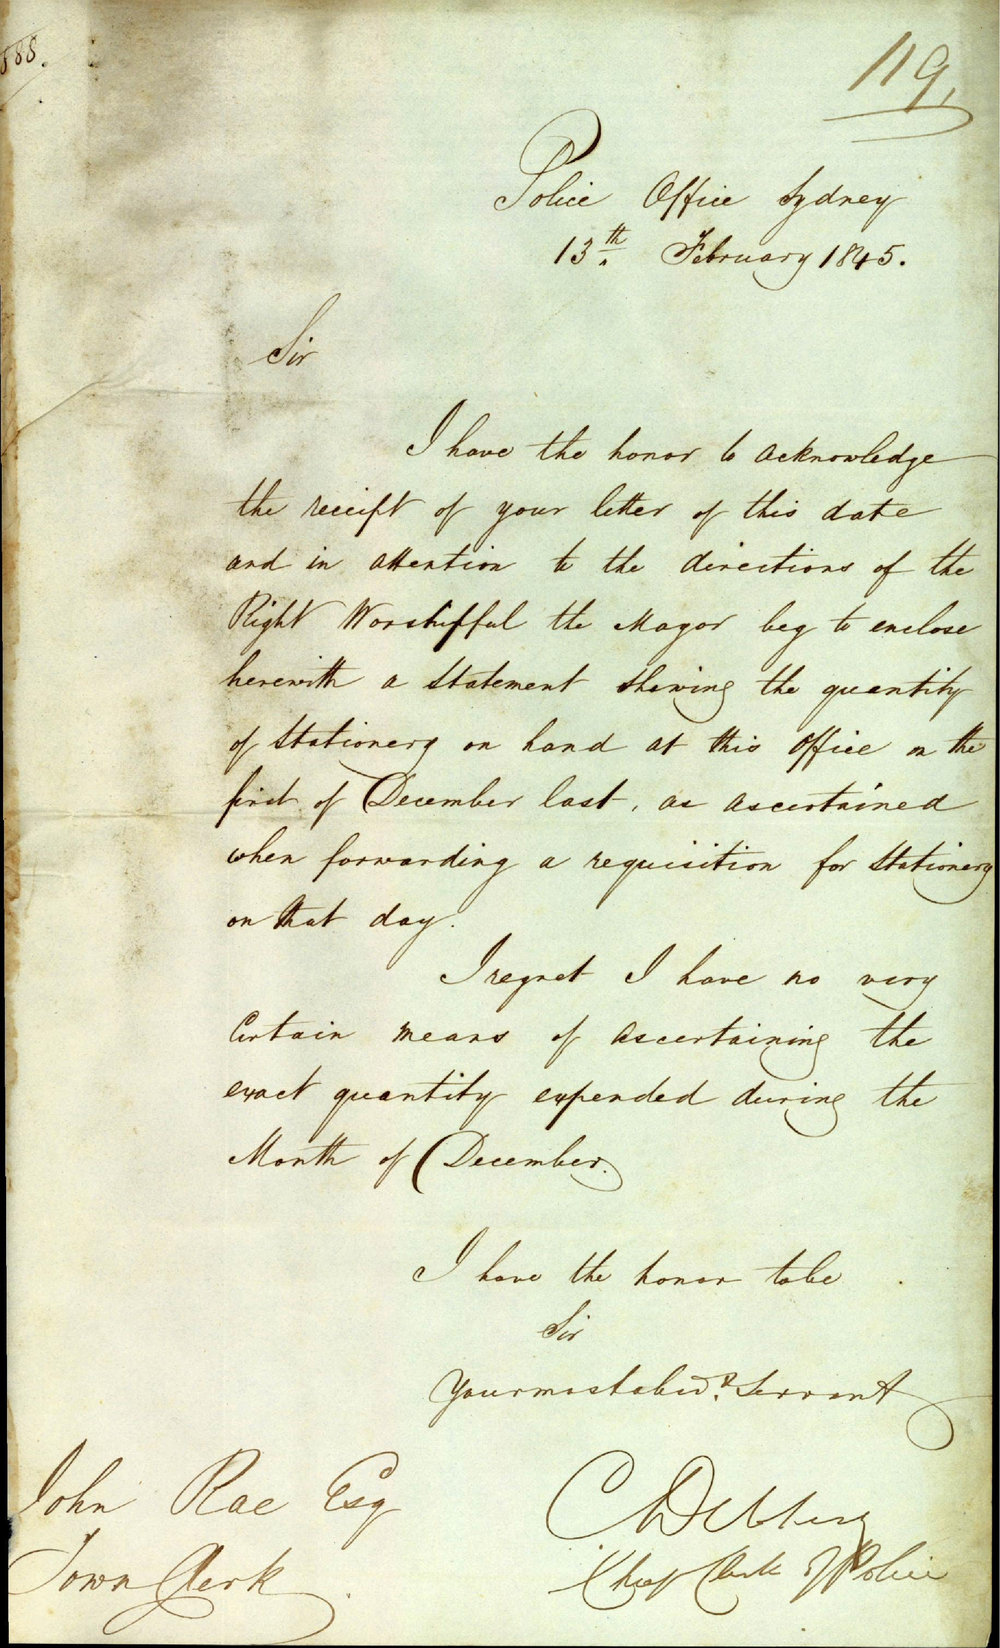 888.
119,
Police Office Sydney
13th. February 1845.
Sir
I have the honor to acknowledge
the receipt of your letter of this date
and in attention to the directions of the
Right Worshipful the Mayor beg to enclose
herewith a Statement Shewing the quantity
of Stationery on hand at this Office on the
first of December last, as ascertained
when forwarding a requisition for Stationery
on that day.
I regret I have no very
Certain means of ascertaining the
exact quantity expended during the
Month of December.
I have the honor to be
Sir
Your most obedt. Servant
John Rae Esq
Town Clerk
Chief Clerk of Police